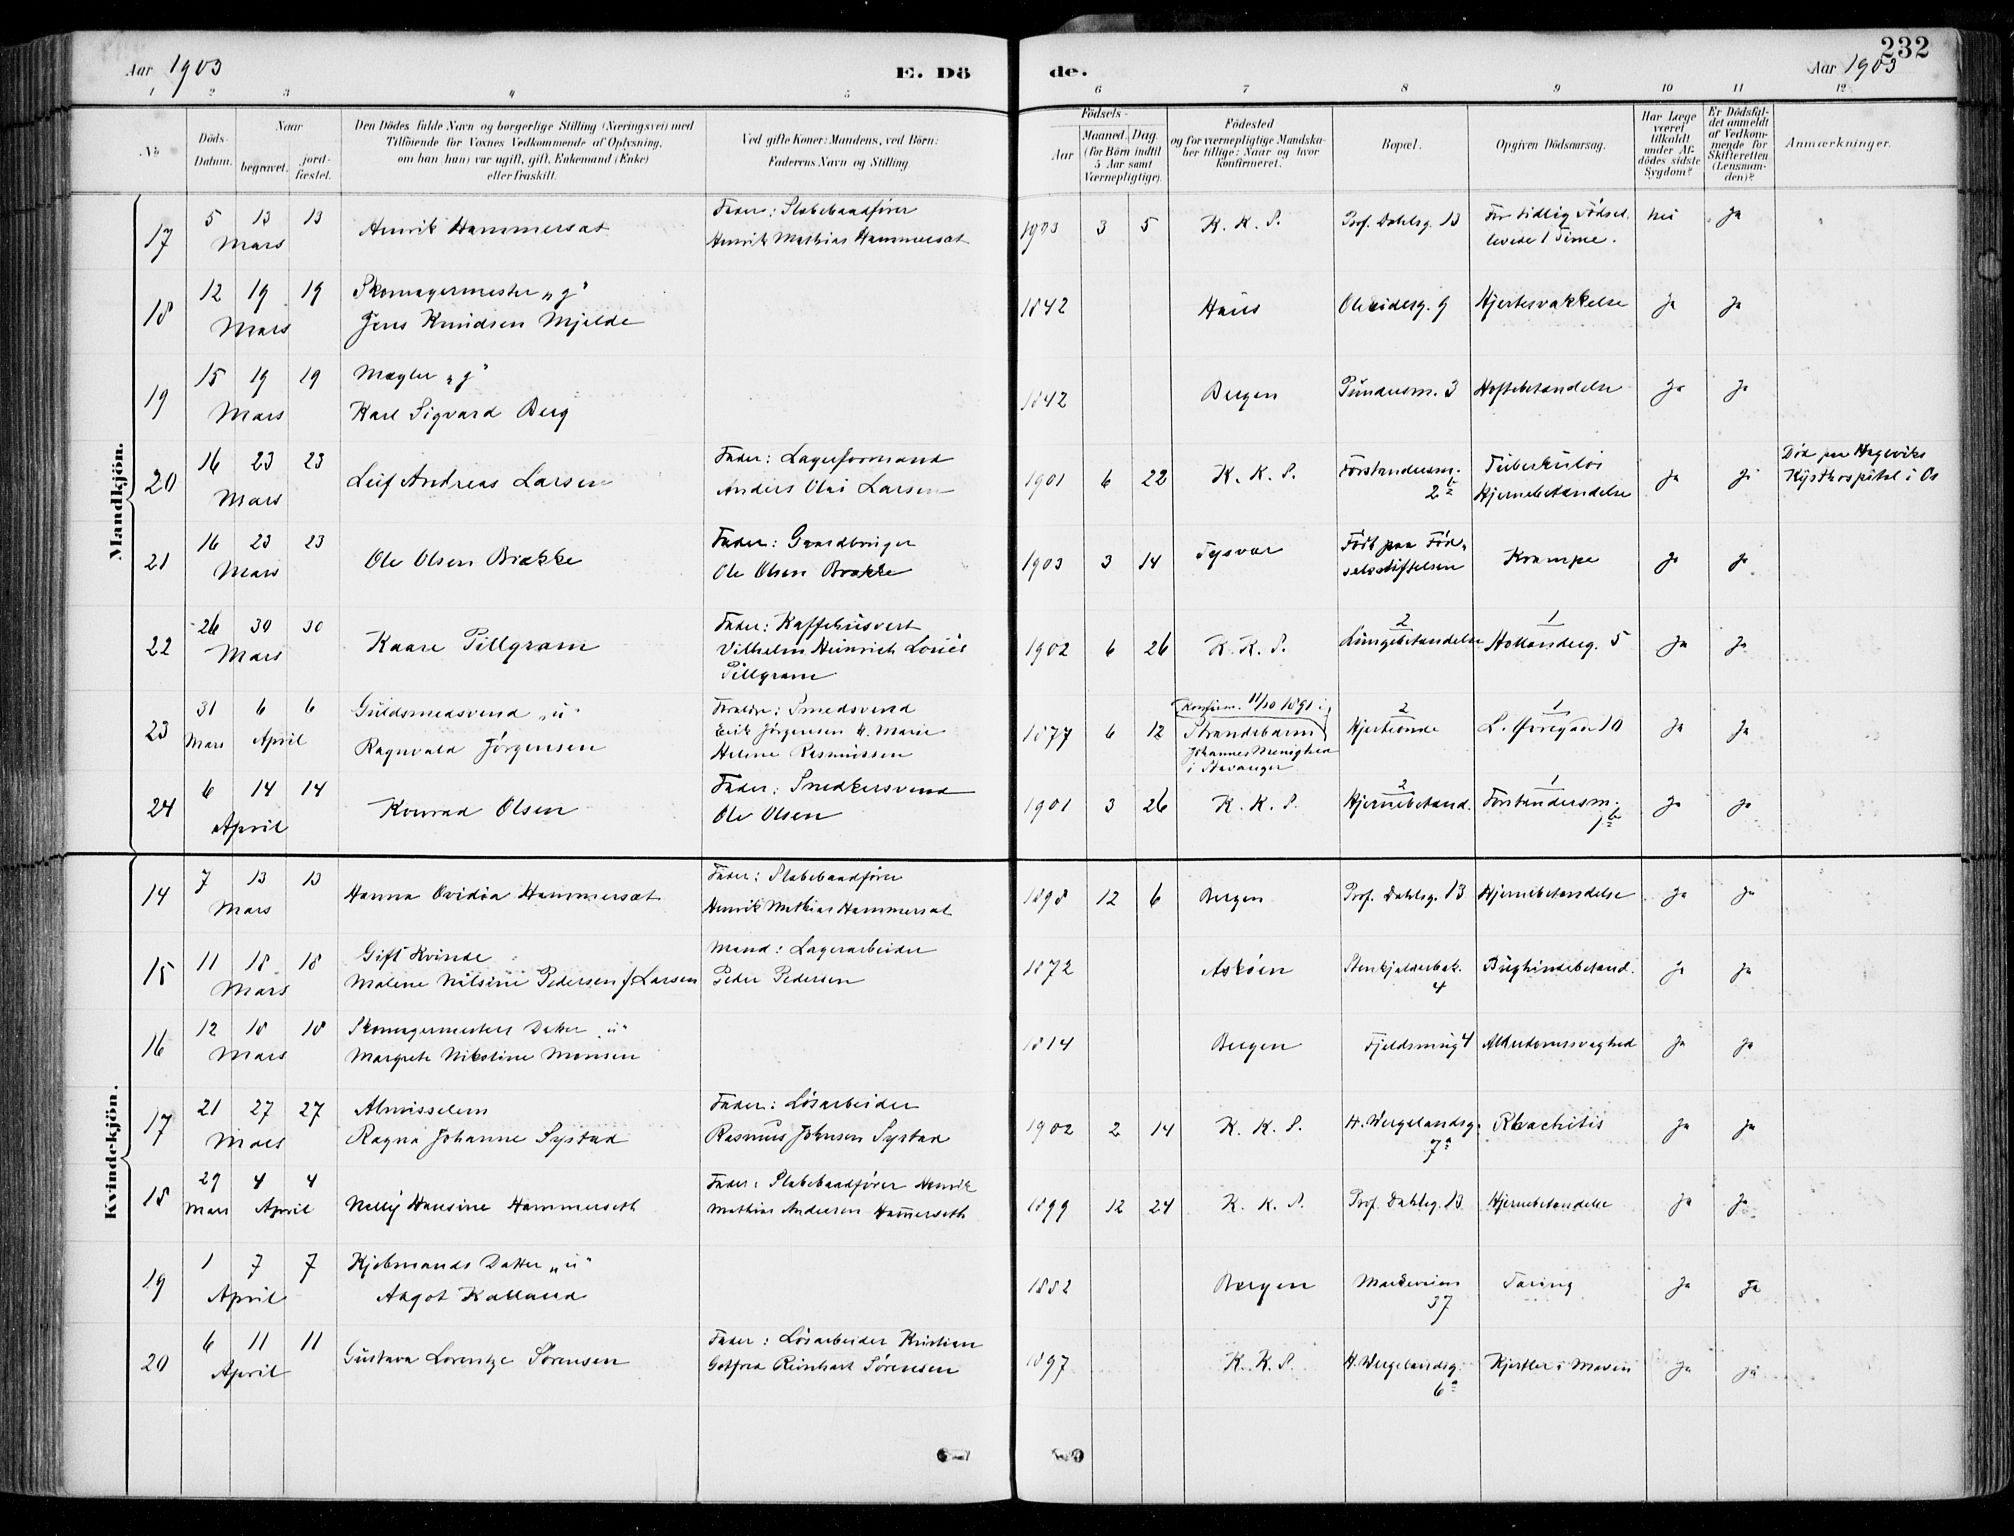 232
Aar 1903
E. Dö
de.
Aar 1903
1 2 3 4 5 6 7 8 9 10 11 12
No
Döds-Datum.
Naar
begravet.
jord-fæstet.
Den Dödes fulde Navn og borgerlige Stilling (Næringsvei) med
Tilföiende for Voxnes Vedkommende af Oplysning,
om han (hun) var ugift, gift, Enkemand (Enke)
eller fraskilt.
Ved gifte Koner: Mandens, ved Börn:
Faderens Navn og Stilling
Födsels-
Aar
Maaned. Dag.
(for Börn indtil
5 Aar samt
Værnepligtige).
Födested
og for værnepligtige Mandska-
ber tillige: Naar og hvor
konfirmeret.
Bopæl.
Opgiven Dödsaarsag.
Har Læge
været
tilkaldt
under Af-
dödes sidste
Sygdom?
Er Dödsfal-
det anmeldt
af Vedkom-
mende for
Skifteretten
(Lensman-
den)?
Anmærkninger.
Mandkjön.
17 5 13 13 Mars
Henrik Hammersæt
Fader: Slabebaandfører
Henrik Mathias Hammersæt
1903 3 5 K. K. S. Prof. Dahlsg. 13
For tidlig Fødsel.
levede 1 Time.
Nei Ja
18 12 19 19 Mars
Skomagermester „g“
Jens Knudsen Mjelde
1842 Haus Ole eidesg. 9 Hjertesvækkelse Ja Ja
19 15 19 19 Mars
Mægler „g“
Karl Sigvard Berg
1842 Bergen 3 Hoftebetændelse Ja Ja
20 16 23 23 Mars
Leif Andreas Larsen
Fader: Lagerformand
Anders Olai Larsen
1901 6 22 K. K. S.
Forstandersm.
2 b
Tuberkuløs
Hjernebetændelse
Ja Ja
Død paa Hageviks
Kysthospital i Os
21 16 23 23 Mars
Ole Olsen Brække
Fader: Gaardbruger
Ole Olsen Brække
1903 3 14 Tysvær
Født paa Fød-
selsstiftelsen
Krampe Ja Ja
22 26 30 30 Mars
Kaare Pillgram
Fader: Kaffehusvert
Vilhelm Heinrich Louis
Pillgram
1902 6 26 K. K. S.
2
Lungebetændelse
1
Hollenderg. 5
Ja Ja
23 31 Mars 6 6 April
Guldsmedsvend „u“
Ragnvald Jørgensen
Forældre: Smedsvend
Erik Jørgensen & Marie
Helene Rasmussen
1877 6 12
Konfirm. 11/10 1891 i
Strandebarm
Johannes Menighed
i Stavanger
2
Hjerteonde
1
L. Øvregaden 10
Ja Ja
24 6 14 14 April
Konrad Olsen
Fader: Snedkersvend
Ole Olsen
1901 3 26 K. K. S.
2
Hjernebetænd.
1
Forstandersm.
1 b
Ja Ja
Kvindekjön.
14 7 13 13 Mars
Hanna Ovidia Hammersæt
Fader: Slabebaandfører
Henrik Mathias Hammersæt
1898 12 6 Bergen Prof. Dahlsg. 13 Hjernebetændelse Ja Ja
15 11 18 18 Mars
Gift Kvinde
Malene Nilsine Pedersen f. Larsen
Mand: Lagerarbeider
Peder Pedersen
1872 Askøen
Stenkjelderbak.
4
Bughindebetænd. Ja Ja
16 12 18 18 Mars
Skomagermesters Datter „u“
Margrete Nikoline Monsen
1814 Bergen Fjeldsmug 4 Alderdomssvaghed Ja Ja
17 21 27 27 Mars
Almisselem
Ragna Johanne Systad
Fader: Løsarbeider
Rasmus Johnsen Systad
1902 2 14 K. K. S.
H. Wergelandsg.
7 a
Rhachitis Ja Ja
18 29 Mars 4 4 April
Nelly Hansine Hammerseth
Fader: Slabebaandfører Henrik
Mathias Andersen Hammerseth
1899 12 24 K. K. S. Prof. Dahlsg. 13 Hjernebetændelse Ja Ja
19 1 7 7 April
Kjøbmands Datter „u“
Aagot Kalland
1882 Bergen
Markeveien
37
Tæring Ja Ja
20 6 11 11 April
Gustava Lorentze Sørensen
Fader: Løsarbeider Kristian
Gotfred Reinhart Sørensen
1897 K. K. S.
H. Wergelandsg.
6 a
Kjertler i Maven Ja Ja